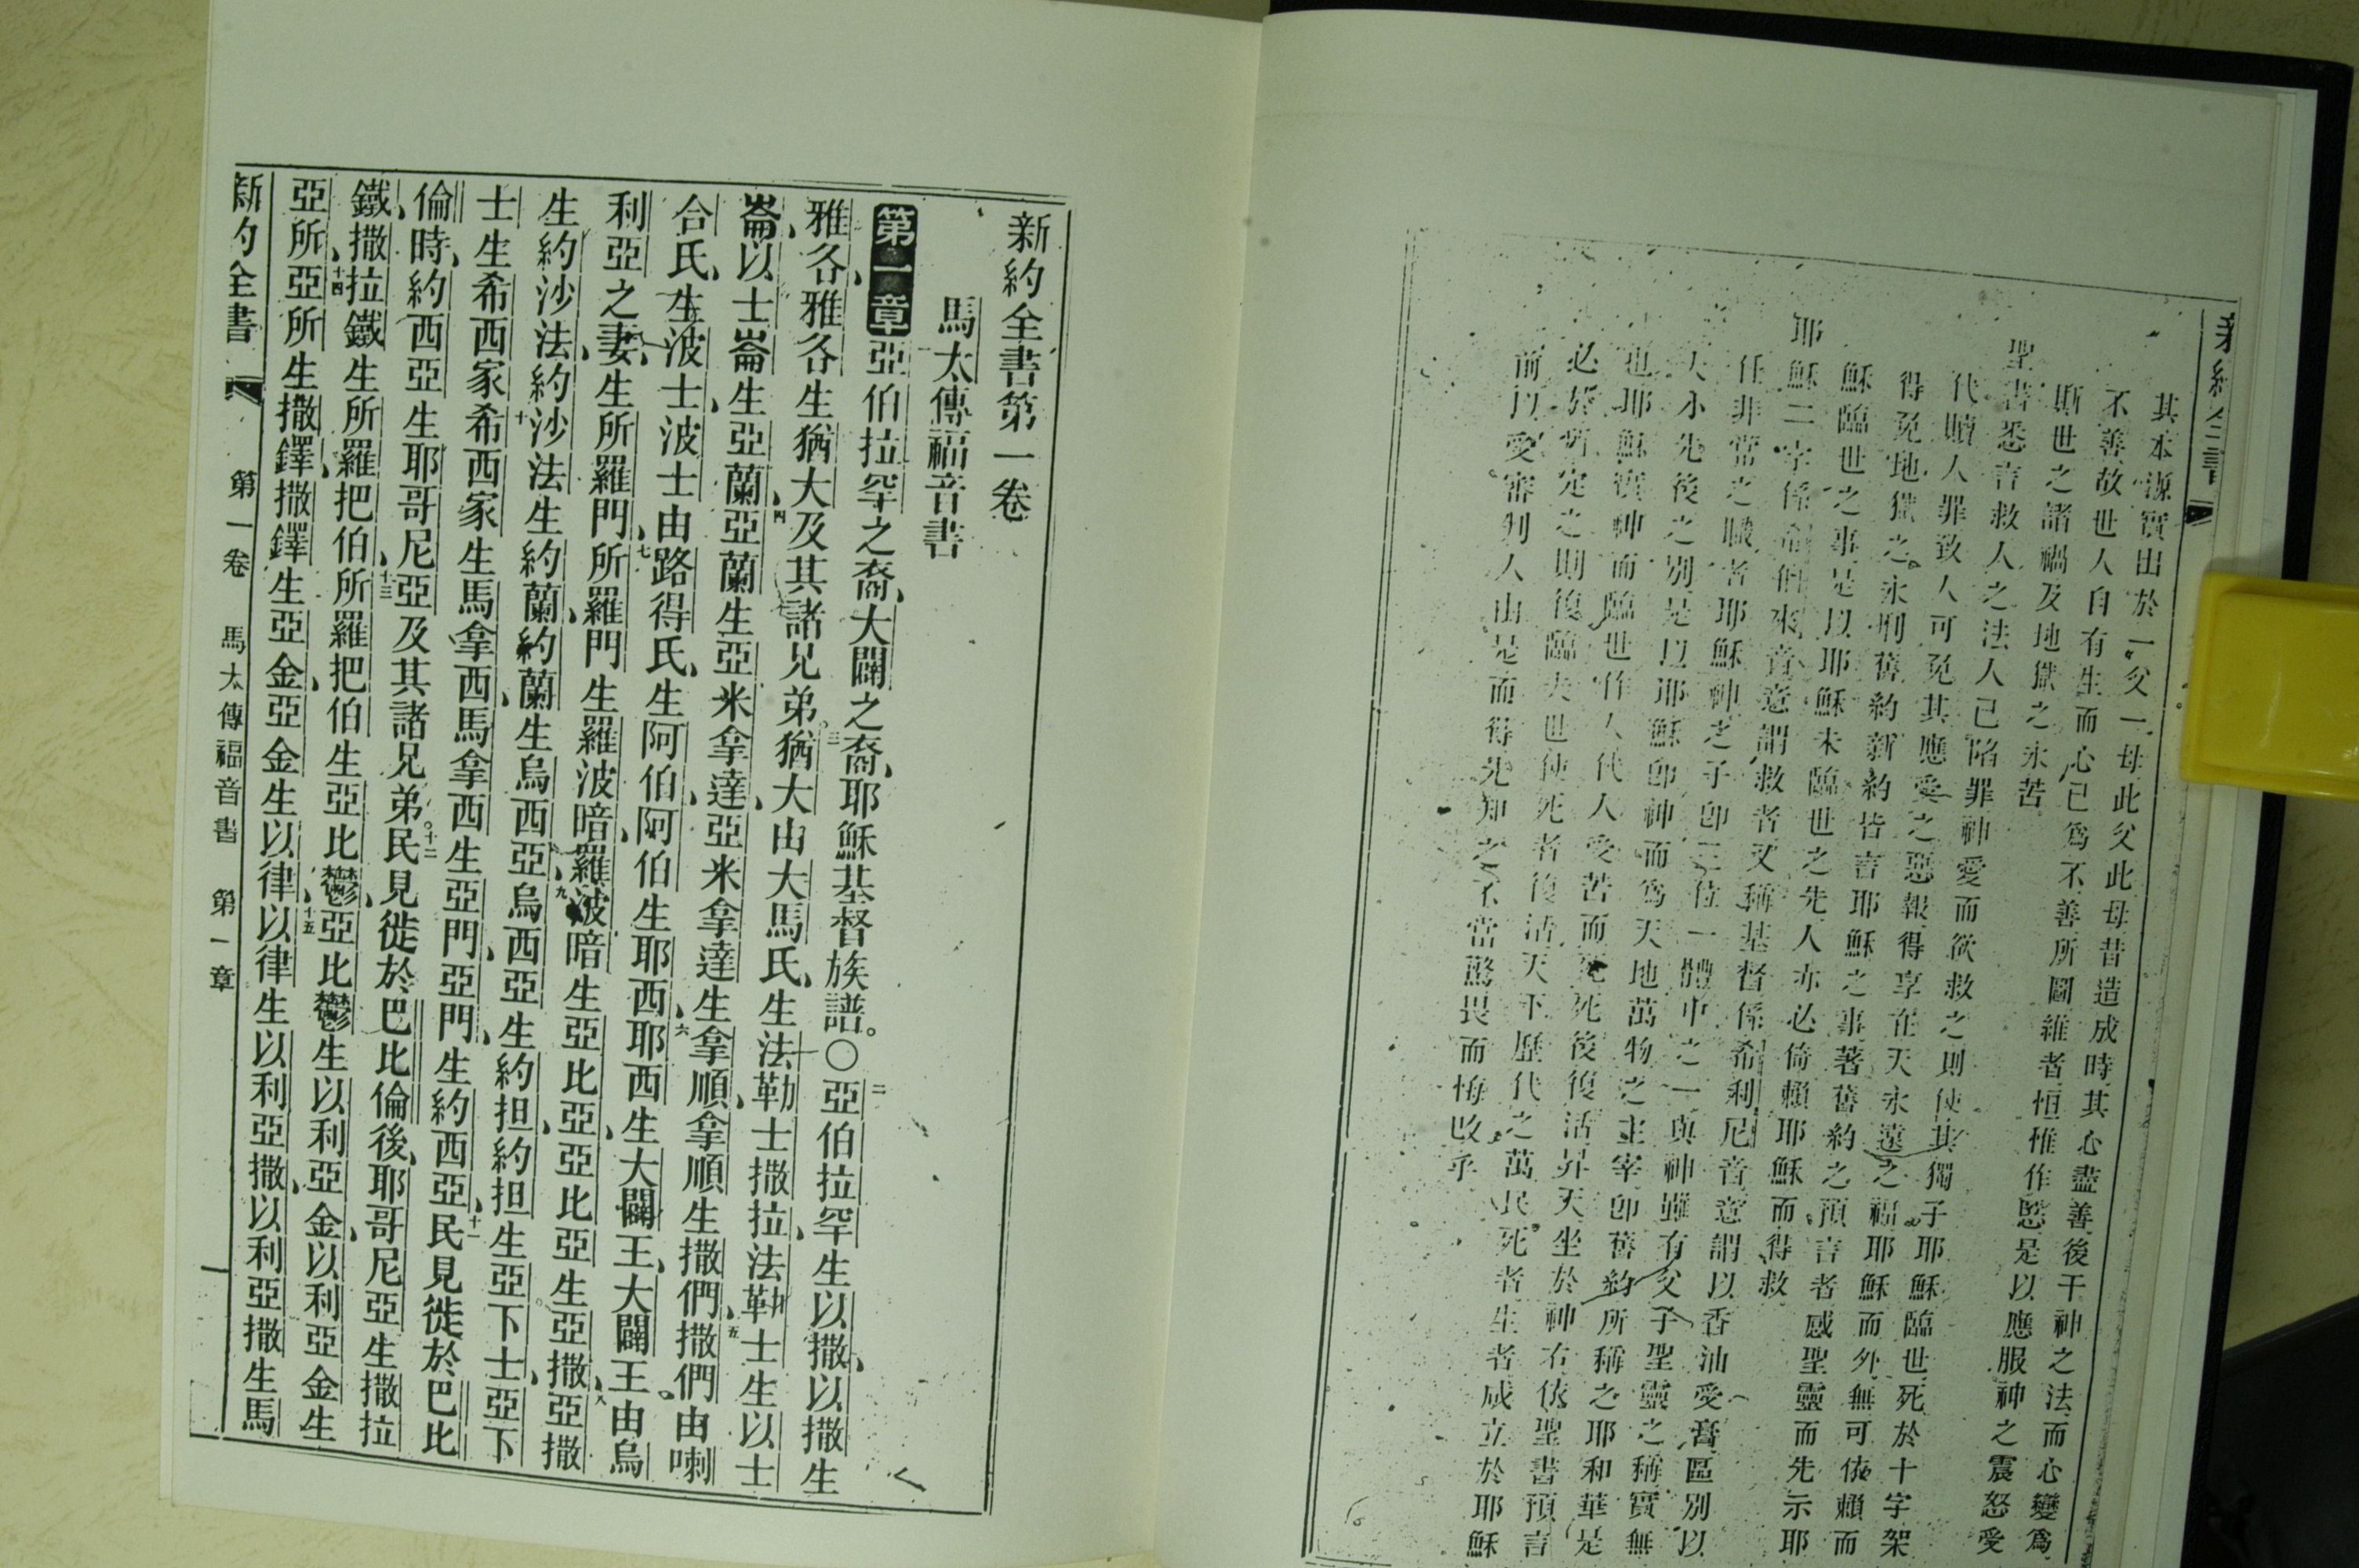 新約全書
其本源實出於一父一母此父此母昔造成時其心盡善後干神之法而心變爲
不善故世人自有生而心已爲不善所圖維者恒惟作慝是以應服神之震怒愛
斯世之諸禍及地獄之永苦
聖書悉言救人之法人已陷罪神愛而欲救之則使其獨子耶穌臨世死於十字架
代贖人罪致人可免其應愛之惡報得享在天永遠之福耶穌而外無可依賴而
得免地獄之永刑舊約新約皆言耶穌之事著舊約之預言者感聖靈而先示耶
穌臨世之事是以耶穌未臨世之先人亦必倚賴耶穌而得救
耶穌二字係希伯來音意謂救者又稱基督係希利尼音意謂以香油愛膏區別以
任非常之職者耶穌神之子即三位一體中之一與神雖有父子聖靈之稱實無
大小先後之別是以耶穌即神而爲天地萬物之主宰即舊約所稱之耶和華是
也耶穌實神而臨世作人代人受苦而死死後復活昇天坐於神右依聖書預言
必於所定之則復臨大世使死者復活天下歷代之萬民死者生者咸立於耶穌
前以愛審判人由是而得先知之不當驚畏而悔改乎
新約全書第一卷
馬太傳福音書
第一章亞伯拉罕之裔大闢之裔耶穌基督族譜。○二亞伯拉罕生以撒以撒生
雅各雅各生猶大及其諸兄弟。三猶大由大馬氏生法勒士撒拉法勒士生以士
崙以士崙生亞蘭四亞蘭生亞米拿達亞米拿達生拿順拿順生撒們五撒們由喇
合氏生波士波士由路得氏生阿伯阿伯生耶西六耶西生大闢王大闢王由烏
利亞之妻生所羅門七所羅門生羅波暗羅波暗生亞比亞亞比亞生亞撒八亞撒
生約沙法約沙法生約蘭約蘭生烏西亞九烏西亞生約担約担生亞下士亞下
士生希西家十希西家生馬拿西馬拿西生亞門亞門生約西亞十一民見徙於巴比
倫時約西亞生耶哥尼亞及其諸兄弟。十二民見徙於巴比倫後耶哥尼亞生撒拉
鐵撒拉鐵生所羅把伯十三所羅把伯生亞比鬱亞比鬱生以利亞金以利亞金生
亞所十四亞所生撒鐸撒鐸生亞金亞金生以律十五以律生以利亞撒以利亞撒生馬
新約全書 第一卷 馬太傳福音書 第一章 一